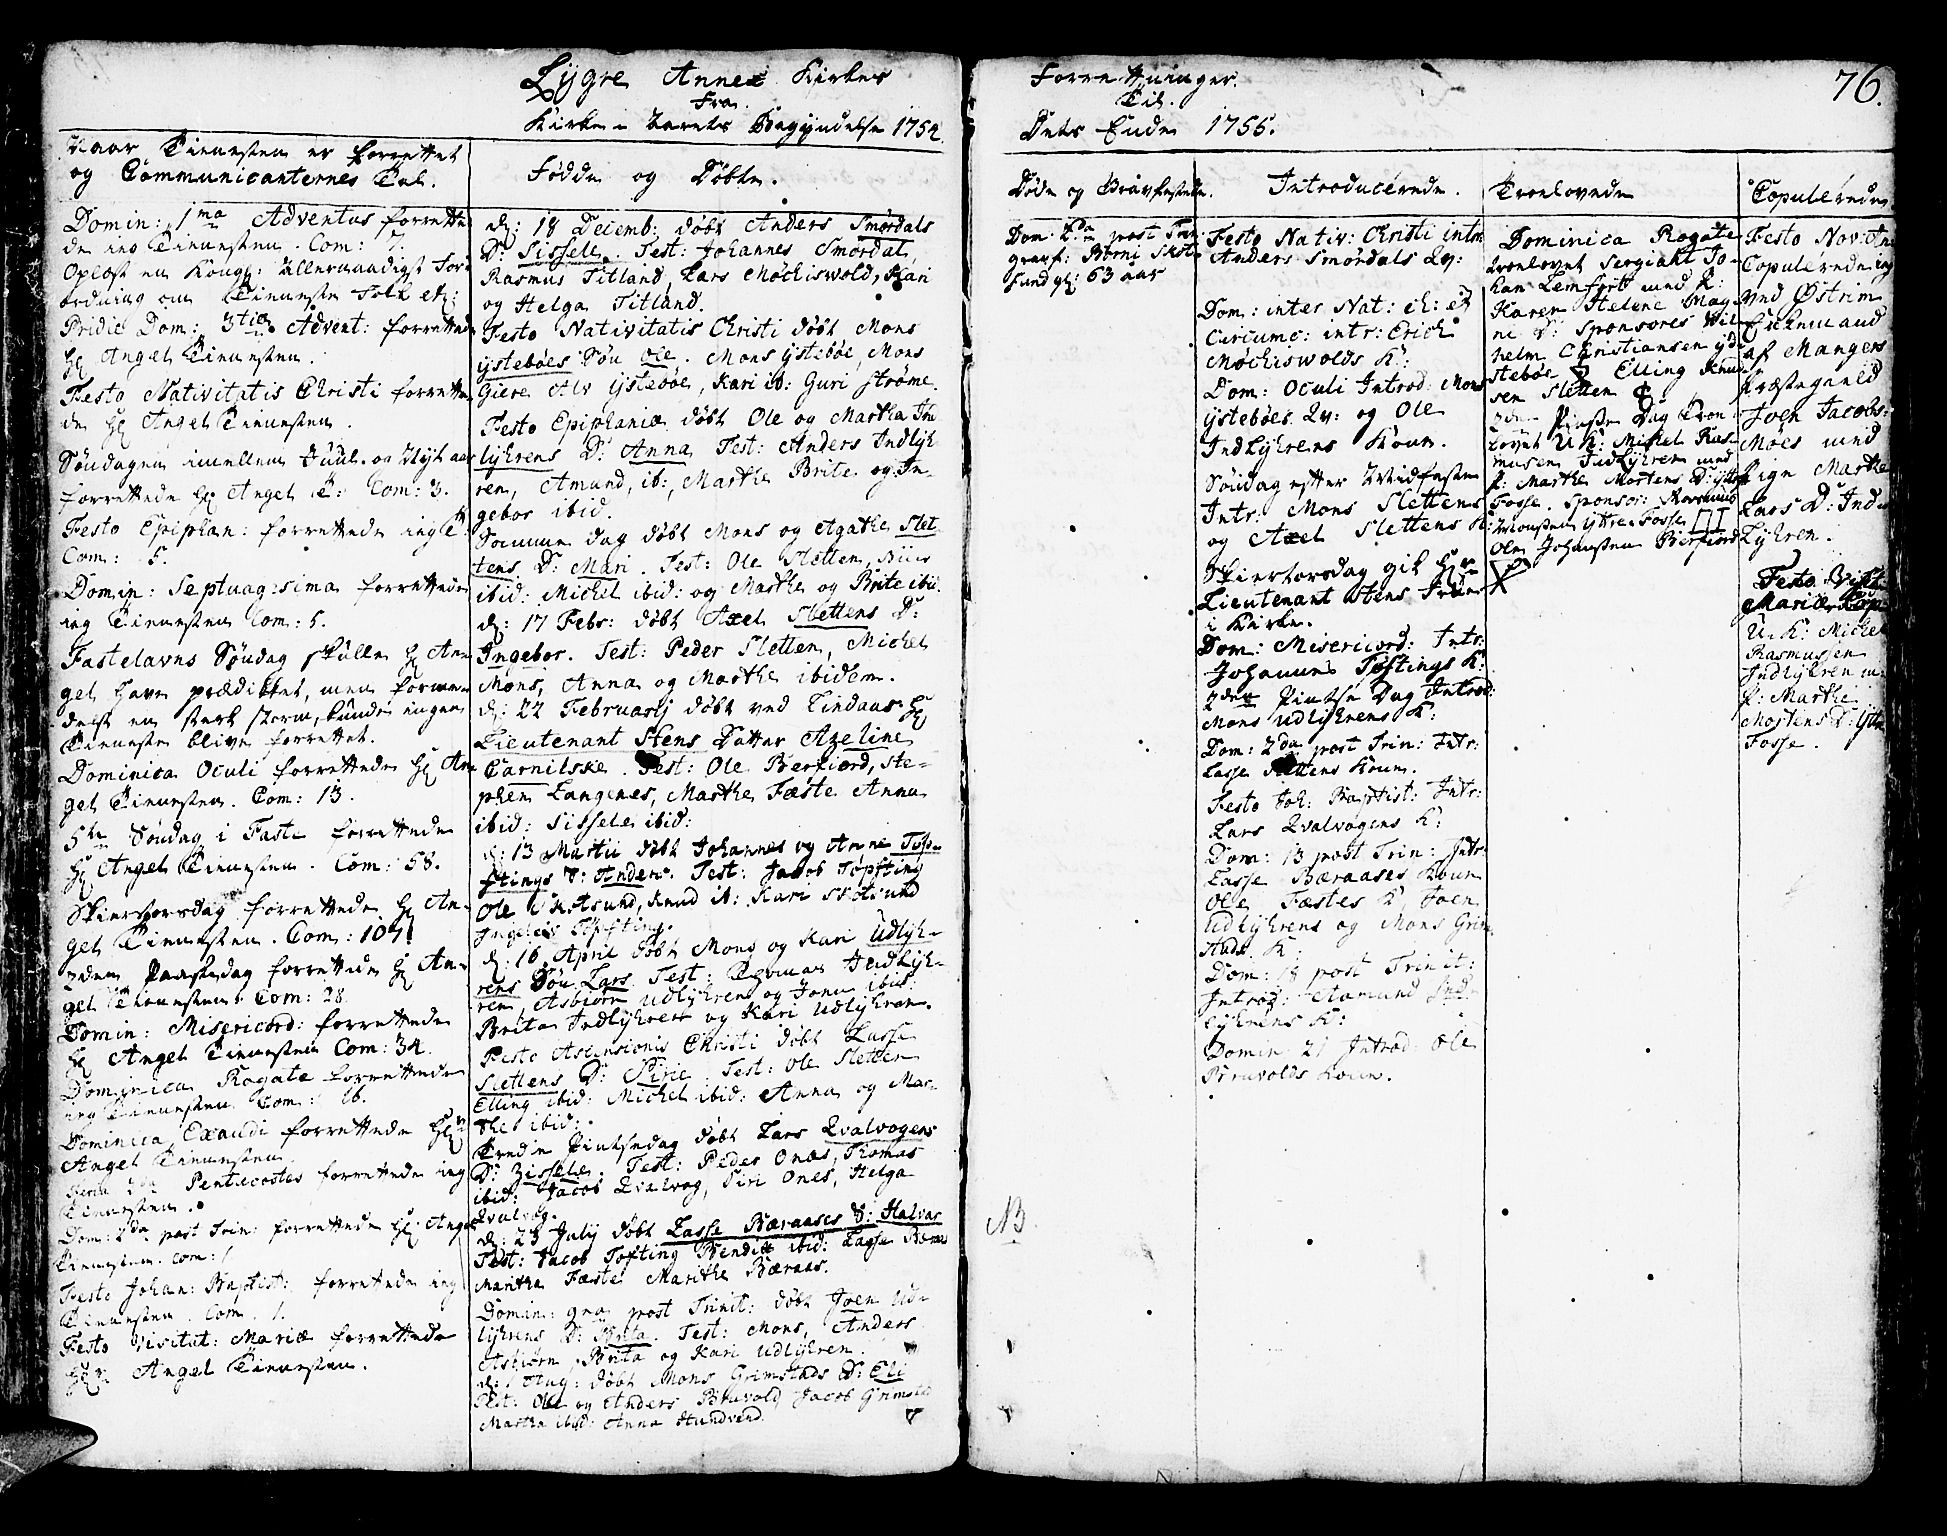 Lygre Annex Kirkes
Fra
Kirke-Aarets Begyndelse 1754.
Naar Tienesten er forrettet
og Communicanternes Tal.
Domin: 1ma Adventus forrette
de ieg Tienesten. Com: 7.
Oplæst en Kongl: Allernaadigst For-
ordning om Tieneste Folk etc:
Pridie Dom: 3tiæ Advent: forrettede
Hr Angel Tienesten.
Festo Nativitatis Christi forrette
de Hr Angel Tienesten.
Søndagen imellem Juul og Nyt aar
forrettede Hr Angel T: Com: 3.
Festo Epiphan: forrettede ieg T:
Com: 5.
Domin: Septuag:sima forrettede
ieg Tienesten Com: 5.
Fastelavns Søndag skulle Hr An-
gel have prædiket, men forme-
delst en sterk storm, kunde ingen
Tieneste blive forrettet.
Dominica Oculi forrettede Hr An-
gel Tienesten. Com: 13.
5te Søndag i Faste forrettede
Hr Angel Tienesten. Com: 58.
Skiertorsdag forrettede Hr An-
gel Tienesten. Com: 107.
2den Paaskedag forrettede Hr An-
gel Tienesten. Com: 28.
Domin: Misericord: forrettede
Hr Angel Tienesten Com: 34.
Dominica Rogate forrettede
ieg Tienesten Com: 16.
Dominica Exaudi forrettede Hr
Angel Tienesten.
Feria 2da Pentecostes forrettede ieg
Tienesten.
Dom: 2da post Trin: forrettede Hr Angel
Tienesten. Com: 1
Festo Johan: Baptist: forrettede ieg
Tienesten. Com. 1.
Festo Visitat: Mariæ forrettede
Hr Angel Tienesten.
Fødde og Døbte.
d: 18 Decemb: døbt Anders Smørdals
D: Sissele. Test: Johannes Smørdal,
Rasmus Titland, Lars Mochiswold, Kari
og Helga Titland.
Festo Nativitatis Christi døbt Mons
Ystebøes Søn Ole. Mons Ystebøe, Mons
Giere Alv Ystebøe, Kari ib: Guri Strøme.
Festo Epiphaniæ døbt Ole og Martha Ind
lykrens D: Anna Test: Anders Indlyk-
ren, Amund, ib:, Marthe Brite og In-
gebor ibid.
Samme dag døbt Mons og Agathe Slet-
tens D: Mari. Test: Ole Sletten,
ibid: Michel ibid: og Marthe og Brite ibid.
d: 17 Febr: døbt Axel Slettens D:
Ingebor. Test: Peder Sletten, Michel
Mons, Anna og Marthe ibidem.
d: 22 Februarij døbt ved Lindaas Hr
Lieutenant Stens Datter Axeline
Carnilske. Test: Ole Berfiord, Ste-
phen Langenes, Marthe Fæste Anna
ibid: Sissele ibid:
d: 13 Martii døbt Johannes og Anne Tøp-
stings S: Anders. Test: Jacob Tøpsting
Ole Skotsund, Knud ib: Kari Skotsund
Ingebor Tøpsting.
d: 16 April døbt Mons og Kari Udlyk-
rens Søn Lars. Test: Thomas Indlyk-
ren, Asbiørn Udlykren og Jone ibid:
Brita Indlykren og Kari Udlykren.
Festo Ascensionis Christi døbt Lasse
Slettens D: Siri. Test: Ole Sletten
Elling ibid: Michel ibid: Anna og Mar-
the ibid:
Tredie Pintsedag døbt Lars Qvalvogens
D: Zissele. Test: Peder Ones, Thomas
ibid: Jacob Qvalvog, Siri Ones, Helga
Qvalvog.
d: 23 July døbt Lasse Bæraases S: Halvar
Test: Jacob Tøfting Bendict ibid: Lasse
Marithe Fæste Marithe Bæraas.
Domin: 9na post Trinit: døbt Joen Ud-
lykrens D: Brita. Test: Mons, Anders
Asbiørn, Brita og Kari Udlykren.
d: 1 Aug: døbt Mons Grimstads D: Eli
Test: Ole og Anders Bruvold Jacob Grimsted
Marthe ibid: Anna Hundvend.
Forrettninger.
Til.
Dets Ende 1755.
76.
Døde og Bravfestede.
Dom: 2da post Trin:
gravf: Børni Skot-
sund gl: 63 aar
NB
Introducerede.
Festo Nativ: Christi intr:
Anders Smørdals Qv:
Dom: inter Nat: ch: et
Circumc: intr: Erich
Mochiswolds K:
Dom: Oculi Introd: Mons
Ystebøes Qv: og Ole
Indlykrens Kone.
Søndag efter Midfasten
Intr: Mons Slettens
og Axel Slettens K:
Skiertorsdag gik Hr
Lieutenant Stens Frue
i Kirke.
Dom: Misericord: Intr:
Johannes Tøftings K:
2den Pintse Dag Introd:
Mons Udlykrens K:
Dom: 2da post Trin: Intr:
Lasse Slettens Kone.
Festo Joh: Baptist: Intr:
Lars Qvalvogens K:
Dom: 13 post Trin: Intr:
Lasse Bæraases Kone
Ole Fæstes K, Joen
Udlykrens og Mons Grim
stads K:
Dom: 18 post Trinit:
Introd: Aamund Ind-
lykrens K:
Domin: 21 Introd: Ole
Bruvolds Kone.
Troelovede
Dominica Rogate
troelovet Sergiant Jo-
han Lemfort med P:
Karen Helene Mag-
ne D: Sponsores Wil-
helm Christiansen Yd-
stebøe & Elling Knud-
sen Sletten
2den Pintse Dag Troe-
lovet U.K: Michel Ras-
musen Indlykren med
P: Marthe Mortens D: Ytre
Fosse. Sponsor: Rasmus
Monsen Ytre Fosse
Ole Johansen Berfiord
Copulerede
Festo Nov: An:
Copulerede ieg
Ved Østrim
Enkemand
af Mangers
Præstegield
Joen Jacobs:
Moes med
Pige Marthe
Lars D: Ind-
Lykren.
Festo Visit:
Mariæ Cop:
U.K: Michel
Rasmussen
Indlykren m:
P: Marthe
Mortens D: Ytre
Fosse.